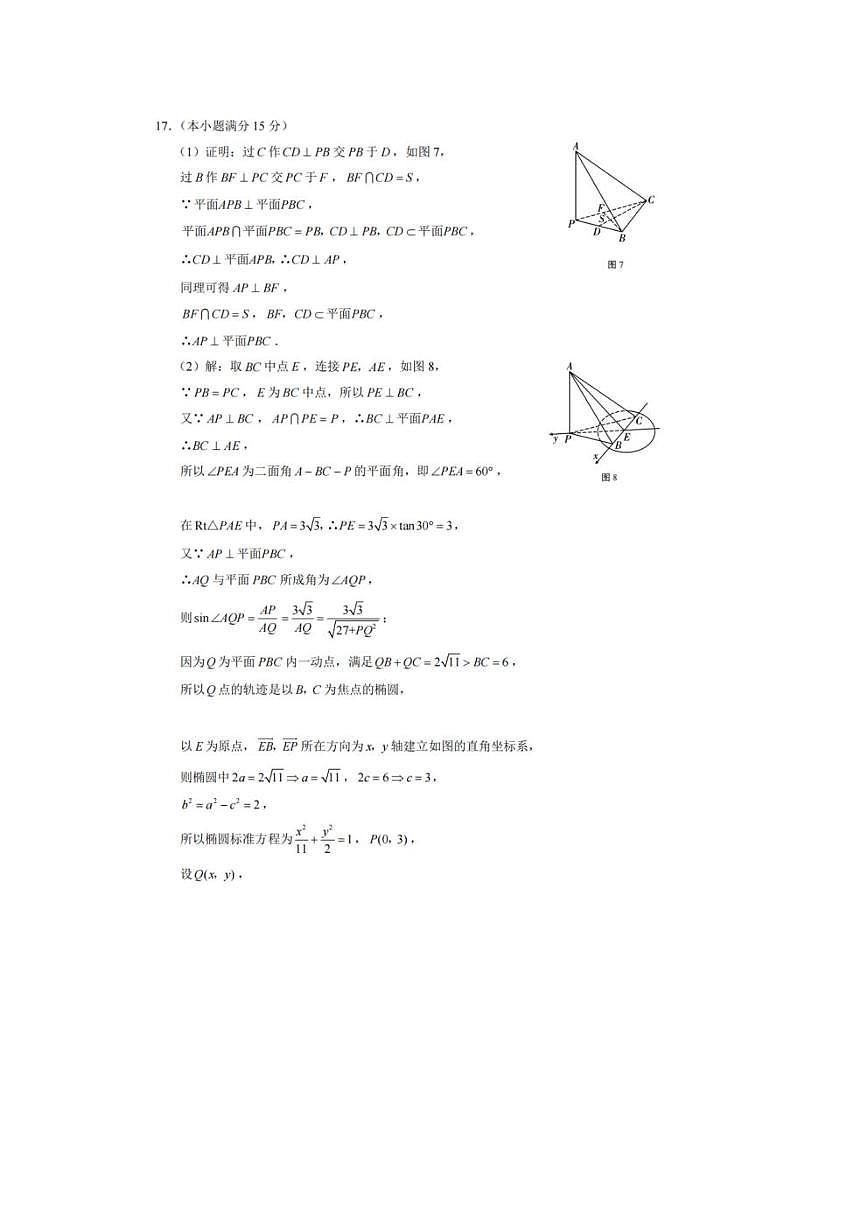 17.（本小题满分 15 分）
（1）证明：过 C 作 CD ⊥ PB 交 PB 于 D，如图 7，
过 B 作 BF ⊥ PC 交 PC 于 F，BF⋂CD = S，
∵平面APB ⊥ 平面PBC，
平面APB⋂平面PBC = PB, CD ⊥ PB, CD ⊂ 平面PBC，
∴CD ⊥ 平面APB, ∴CD ⊥ AP，
同理可得 AP ⊥ BF，
BF⋂CD = S，BF，CD ⊂ 平面PBC，
∴AP ⊥ 平面PBC．
A
C
F
S
P
D
B
图 7
（2）解：取 BC 中点 E，连接 PE，AE，如图 8，
∵PB = PC，E 为 BC 中点，所以 PE ⊥ BC，
又∵AP ⊥ BC，AP⋂PE = P，∴BC ⊥ 平面PAE，
∴BC ⊥ AE，
所以∠PEA 为二面角 A − BC − P 的平面角，即∠PEA = 60°，
A
C
y P
E
B
x
图 8
在 Rt△PAE 中，PA = 3√3, ∴PE = 3√3 × tan 30° = 3，
又∵AP ⊥ 平面PBC，
∴AQ 与平面 PBC 所成角为∠AQP，
则 sin∠AQP = AP/AQ = 3√3/AQ = 3√3/√(27+PQ²)；
因为 Q 为平面 PBC 内一动点，满足 QB + QC = 2√11 > BC = 6，
所以 Q 点的轨迹是以 B，C 为焦点的椭圆，
以 E 为原点，EB，EP 所在方向为 x，y 轴建立如图的直角坐标系，
则椭圆中 2a = 2√11 ⇒ a = √11，2c = 6 ⇒ c = 3，
b² = a² − c² = 2，
所以椭圆标准方程为 x²/11 + y²/2 = 1，P(0，3)，
设 Q(x，y)，